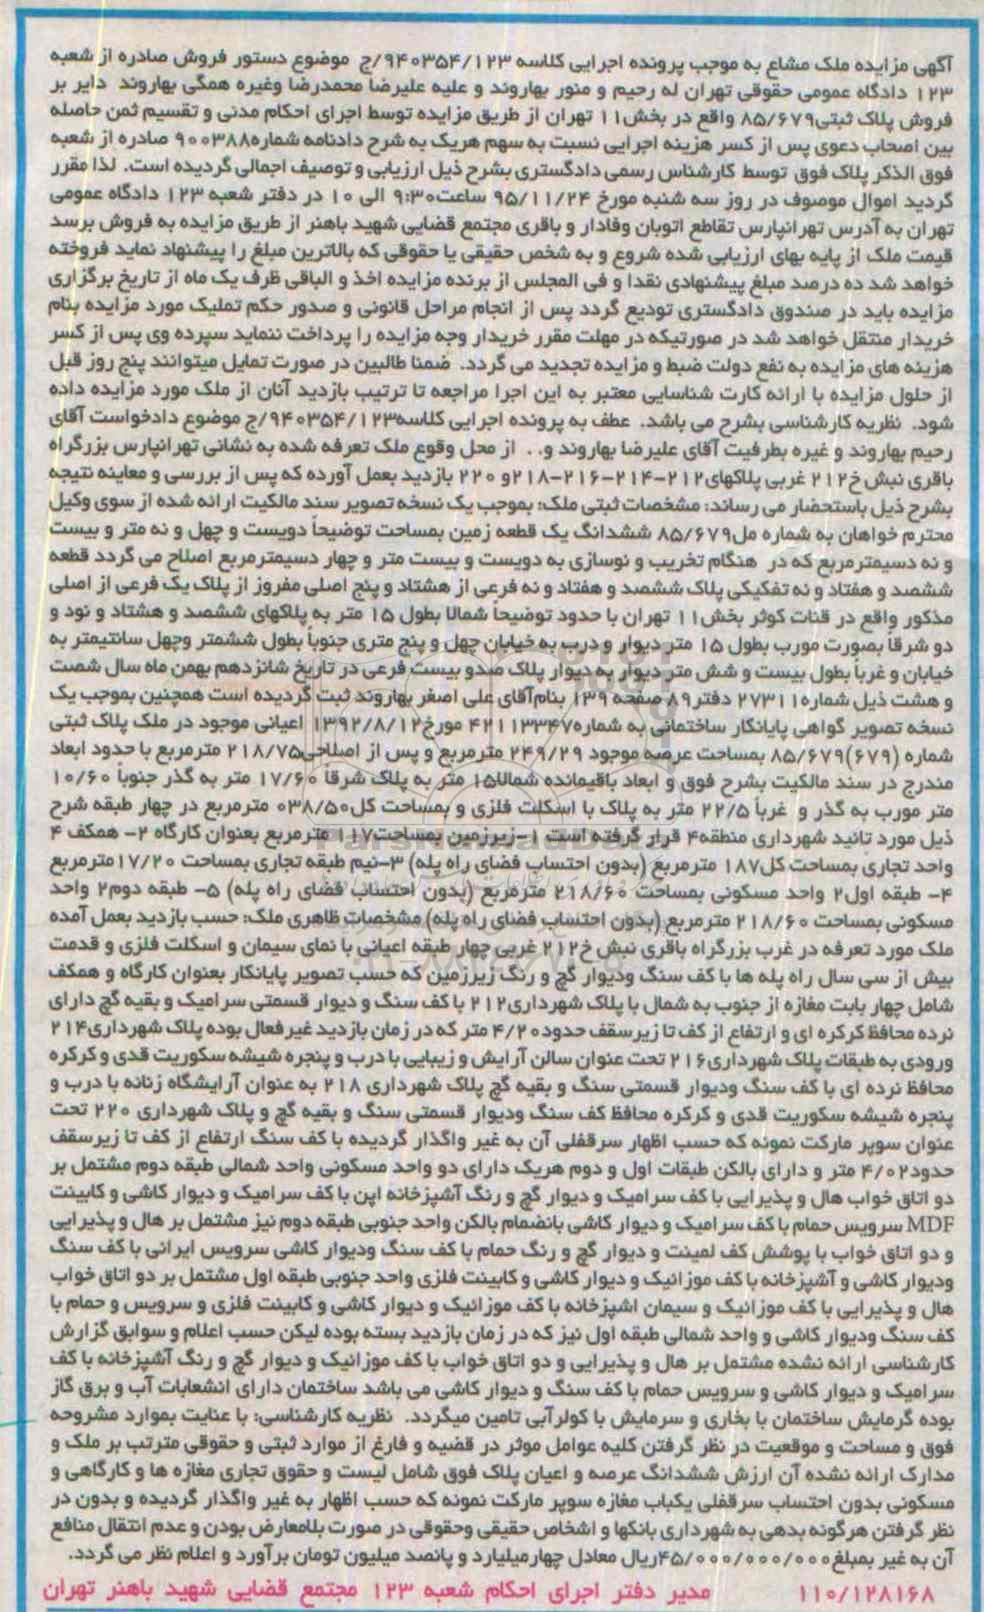 آگهی مزایده ملک مشاع به موجب پرونده اجرایی کلاسه ۹۴۰۳۵۴/۱۲۳/ج موضوع دستور فروش صادره از شعبه
۱۲۳ دادگاه عمومی حقوقی تهران له رحیم و منور بهاروند و علیه علیرضا محمدرضا وغیره همگی بهاروند دایر بر
فروش پلاک ثبتی۸۵/۶۷۹ واقع در بخش۱۱ تهران از طریق مزایده توسط اجرای احکام مدنی و تقسیم ثمن حاصله
بین اصحاب دعوی پس از کسر هزینه اجرایی نسبت به سهم هریک به شرح دادنامه شماره۹۰۰۳۸۸ صادره از شعبه
فوق الذکر پلاک فوق توسط کارشناس رسمی دادگستری بشرح ذیل ارزیابی و توصیف اجمالی گردیده است. لذا مقرر
گردید اموال موصوف در روز سه شنبه مورخ ۹۵/۱۱/۲۴ ساعت۹:۳۰ الی ۱۰ در دفتر شعبه ۱۲۳ دادگاه عمومی
تهران به آدرس تهرانپارس تقاطع اتوبان وفادار و باقری مجتمع قضایی شهید باهنر از طریق مزایده به فروش برسد
قیمت ملک از پایه بهای ارزیابی شده شروع و به شخص حقیقی یا حقوقی که بالاترین مبلغ را پیشنهاد نماید فروخته
خواهد شد ده درصد مبلغ پیشنهادی نقدا و فی المجلس از برنده مزایده اخذ و الباقی ظرف یک ماه از تاریخ برگزاری
مزایده باید در صندوق دادگستری تودیع گردد پس از انجام مراحل قانونی و صدور حکم تملیک مورد مزایده بنام
خریدار منتقل خواهد شد در صورتیکه در مهلت مقرر خریدار وجه مزایده را پرداخت ننماید سپرده وی پس از کسر
هزینه های مزایده به نفع دولت ضبط و مزایده تجدید می گردد. ضمنا طالبین در صورت تمایل میتوانند پنج روز قبل
از حلول مزایده با ارائه کارت شناسایی معتبر به این اجرا مراجعه تا ترتیب بازدید آنان از ملک مورد مزایده داده
شود. نظریه کارشناسی بشرح می باشد. عطف به پرونده اجرایی کلاسه۹۴۰۳۵۴/۱۲۳/ج موضوع دادخواست آقای
رحیم بهاروند و غیره بطرفیت آقای علیرضا بهاروند و. . از محل وقوع ملک تعرفه شده به نشانی تهرانپارس بزرگراه
باقری نبش خ۲۱۲ غربی پلاکهای۲۱۲-۲۱۴-۲۱۶-۲۱۸و ۲۲۰ بازدید بعمل آورده که پس از بررسی و معاینه نتیجه
بشرح ذیل باستحضار می رساند: مشخصات ثبتی ملک: بموجب یک نسخه تصویر سند مالکیت ارائه شده از سوی وکیل
محترم خواهان به شماره مل۸۵/۶۷۹ ششدانگ یک قطعه زمین بمساحت توضیحاً دویست و چهل و نه متر و بیست
و نه دسیمترمربع که در هنگام تخریب و نوسازی به دویست و بیست متر و چهار دسیمترمربع اصلاح می گردد قطعه
ششصد و هفتاد و نه تفکیکی پلاک ششصد و هفتاد و نه فرعی از هشتاد و پنج اصلی مفروز از پلاک یک فرعی از اصلی
مذکور واقع در قنات کوثر بخش۱۱ تهران با حدود توضیحاً شمالا بطول ۱۵ متر به پلاکهای ششصد و هشتاد و نود و
دو شرقاً بصورت مورب بطول ۱۵ متر دیوار و درب به خیابان چهل و پنج متری جنوباً بطول ششمتر وچهل سانتیمتر به
خیابان و غرباً بطول بیست و شش متر دیوار به دیوار پلاک صدو بیست فرعی در تاریخ شانزدهم بهمن ماه سال شصت
و هشت ذیل شماره۲۷۳۱۱ دفتر۸۹ صفحه ۱۳۹ بنام آقای علی اصغر بهاروند ثبت گردیده است همچنین بموجب یک
نسخه تصویر گواهی پایانکار ساختمانی به شماره۴۲۱۱۳۳۴۷ مورخ۱۳۹۲/۸/۱۲ اعیانی موجود در ملک پلاک ثبتی
شماره (۶۷۹)۸۵/۶۷۹ بمساحت عرصه موجود ۲۴۹/۲۹ مترمربع و پس از اصلاحی۲۱۸/۷۵ مترمربع با حدود ابعاد
مندرج در سند مالکیت بشرح فوق و ابعاد باقیمانده شمالا۱۵ متر به پلاک شرقاً ۱۷/۶۰ متر به گذر جنوباً ۱۰/۶۰
متر مورب به گذر و غرباً ۲۲/۵ متر به پلاک با اسکلت فلزی و بمساحت کل۰۳۸/۵۰ مترمربع در چهار طبقه شرح
ذیل مورد تائید شهرداری منطقه۴ قرار گرفته است ۱-زیرزمین بمساحت۱۱۷ مترمربع بعنوان کارگاه ۲- همکف ۴
واحد تجاری بمساحت کل۱۸۷ مترمربع (بدون احتساب فضای راه پله) ۳-نیم طبقه تجاری بمساحت ۱۷/۲۰مترمربع
۴- طبقه اول۲ واحد مسکونی بمساحت ۲۱۸/۶۰ مترمربع (بدون احتساب فضای راه پله) ۵- طبقه دوم۲ واحد
مسکونی بمساحت ۲۱۸/۶۰ مترمربع (بدون احتساب فضای راه پله) مشخصات ظاهری ملک: حسب بازدید بعمل آمده
ملک مورد تعرفه در غرب بزرگراه باقری نبش خ۲۱۲ غربی چهار طبقه اعیانی با نمای سیمان و اسکلت فلزی و قدمت
بیش از سی سال راه پله ها با کف سنگ ودیوار گچ و رنگ زیرزمین که حسب تصویر پایانکار بعنوان کارگاه و همکف
شامل چهار بابت مغازه از جنوب به شمال با پلاک شهرداری۲۱۲ با کف سنگ و دیوار قسمتی سرامیک و بقیه گچ دارای
نرده محافظ کرکره ای و ارتفاع از کف تا زیرسقف حدود۴/۲۰ متر که در زمان بازدید غیرفعال بوده پلاک شهرداری۲۱۴
ورودی به طبقات پلاک شهرداری۲۱۶ تحت عنوان سالن آرایش و زیبایی با درب و پنجره شیشه سکوریت قدی و کرکره
محافظ نرده ای با کف سنگ ودیوار قسمتی سنگ و بقیه گچ پلاک شهرداری ۲۱۸ به عنوان آرایشگاه زنانه با درب و
پنجره شیشه سکوریت قدی و کرکره محافظ کف سنگ ودیوار قسمتی سنگ و بقیه گچ و پلاک شهرداری ۲۲۰ تحت
عنوان سوپر مارکت نمونه که حسب اظهار سرقفلی آن به غیر واگذار گردیده با کف سنگ ارتفاع از کف تا زیرسقف
حدود۴/۰۲ متر و دارای بالکن طبقات اول و دوم هریک دارای دو واحد مسکونی واحد شمالی طبقه دوم مشتمل بر
دو اتاق خواب هال و پذیرایی با کف سرامیک و دیوار گچ و رنگ آشپزخانه اپن با کف سرامیک و دیوار کاشی و کابینت
MDF سرویس حمام با کف سرامیک و دیوار کاشی بانضمام بالکن واحد جنوبی طبقه دوم نیز مشتمل بر هال و پذیرایی
و دو اتاق خواب با پوشش کف لمینت و دیوار گچ و رنگ حمام با کف سنگ ودیوار کاشی سرویس ایرانی با کف سنگ
ودیوار کاشی و آشپزخانه با کف موزائیک و دیوار کاشی و کابینت فلزی واحد جنوبی طبقه اول مشتمل بر دو اتاق خواب
هال و پذیرایی با کف موزائیک و سیمان اشپزخانه با کف موزائیک و دیوار کاشی و کابینت فلزی و سرویس و حمام با
کف سنگ ودیوار کاشی و واحد شمالی طبقه اول نیز که در زمان بازدید بسته بوده لیکن حسب اعلام و سوابق گزارش
کارشناسی ارائه نشده مشتمل بر هال و پذیرایی و دو اتاق خواب با کف موزائیک و دیوار گچ و رنگ آشپزخانه با کف
سرامیک و دیوار کاشی و سرویس حمام با کف سنگ و دیوار کاشی می باشد ساختمان دارای انشعابات آب و برق گاز
بوده گرمایش ساختمان با بخاری و سرمایش با کولرآبی تامین میگردد. نظریه کارشناسی: با عنایت بموارد مشروحه
فوق و مساحت و موقعیت در نظر گرفتن کلیه عوامل موثر در قضیه و فارغ از موارد ثبتی و حقوقی مترتب بر ملک و
مدارک ارائه نشده آن ارزش ششدانگ عرصه و اعیان پلاک فوق شامل لیست و حقوق تجاری مغازه ها و کارگاهی و
مسکونی بدون احتساب سرقفلی یکباب مغازه سوپر مارکت نمونه که حسب اظهار به غیر واگذار گردیده و بدون در
نظر گرفتن هرگونه بدهی به شهرداری بانکها و اشخاص حقیقی وحقوقی در صورت بلامعارض بودن و عدم انتقال منافع
آن به غیر بمبلغ۴۵/۰۰۰/۰۰۰/۰۰۰ریال معادل چهارمیلیارد و پانصد میلیون تومان برآورد و اعلام نظر می گردد.
۱۱۰/۱۲۸۱۶۸ مدیر دفتر اجرای احکام شعبه ۱۲۳ مجتمع قضایی شهید باهنر تهران